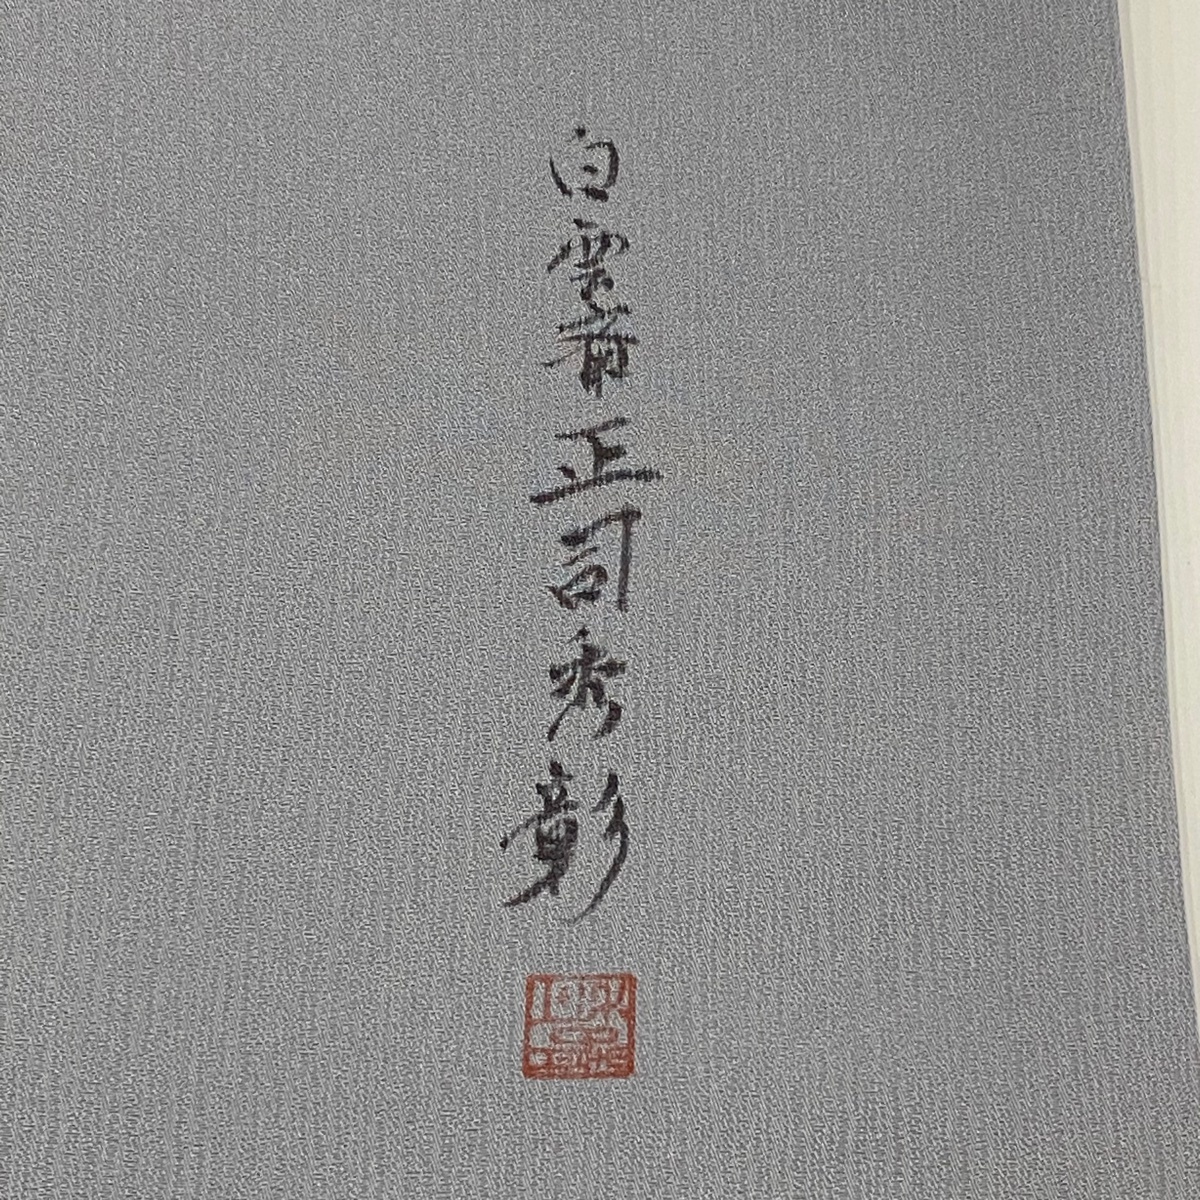 白雲斎正司秀彰